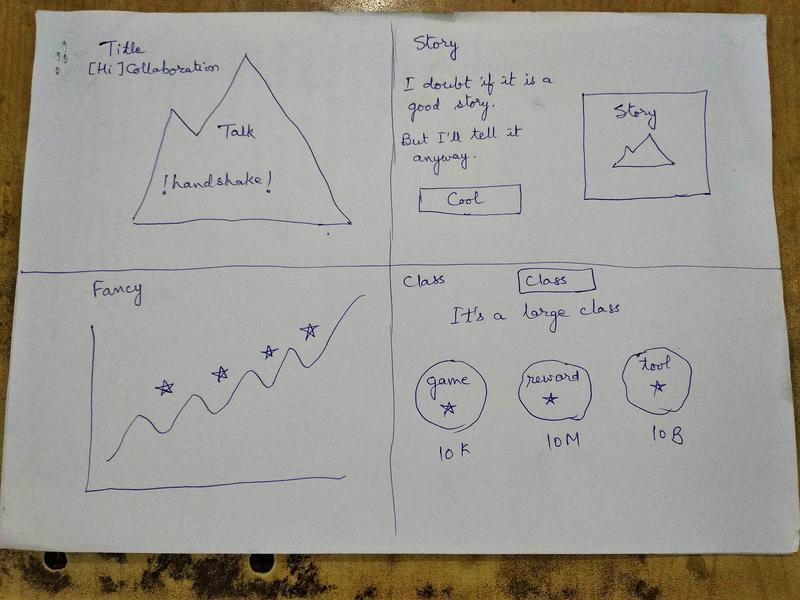 Title
[Hi] Collaboration
Talk
!handshake!
Story
I doubt if it is a
good story.
But I'll tell it
anyway.
Cool
Story
Fancy
Class
Class
It's a large class
game
reward
tool
10K
10M
10B